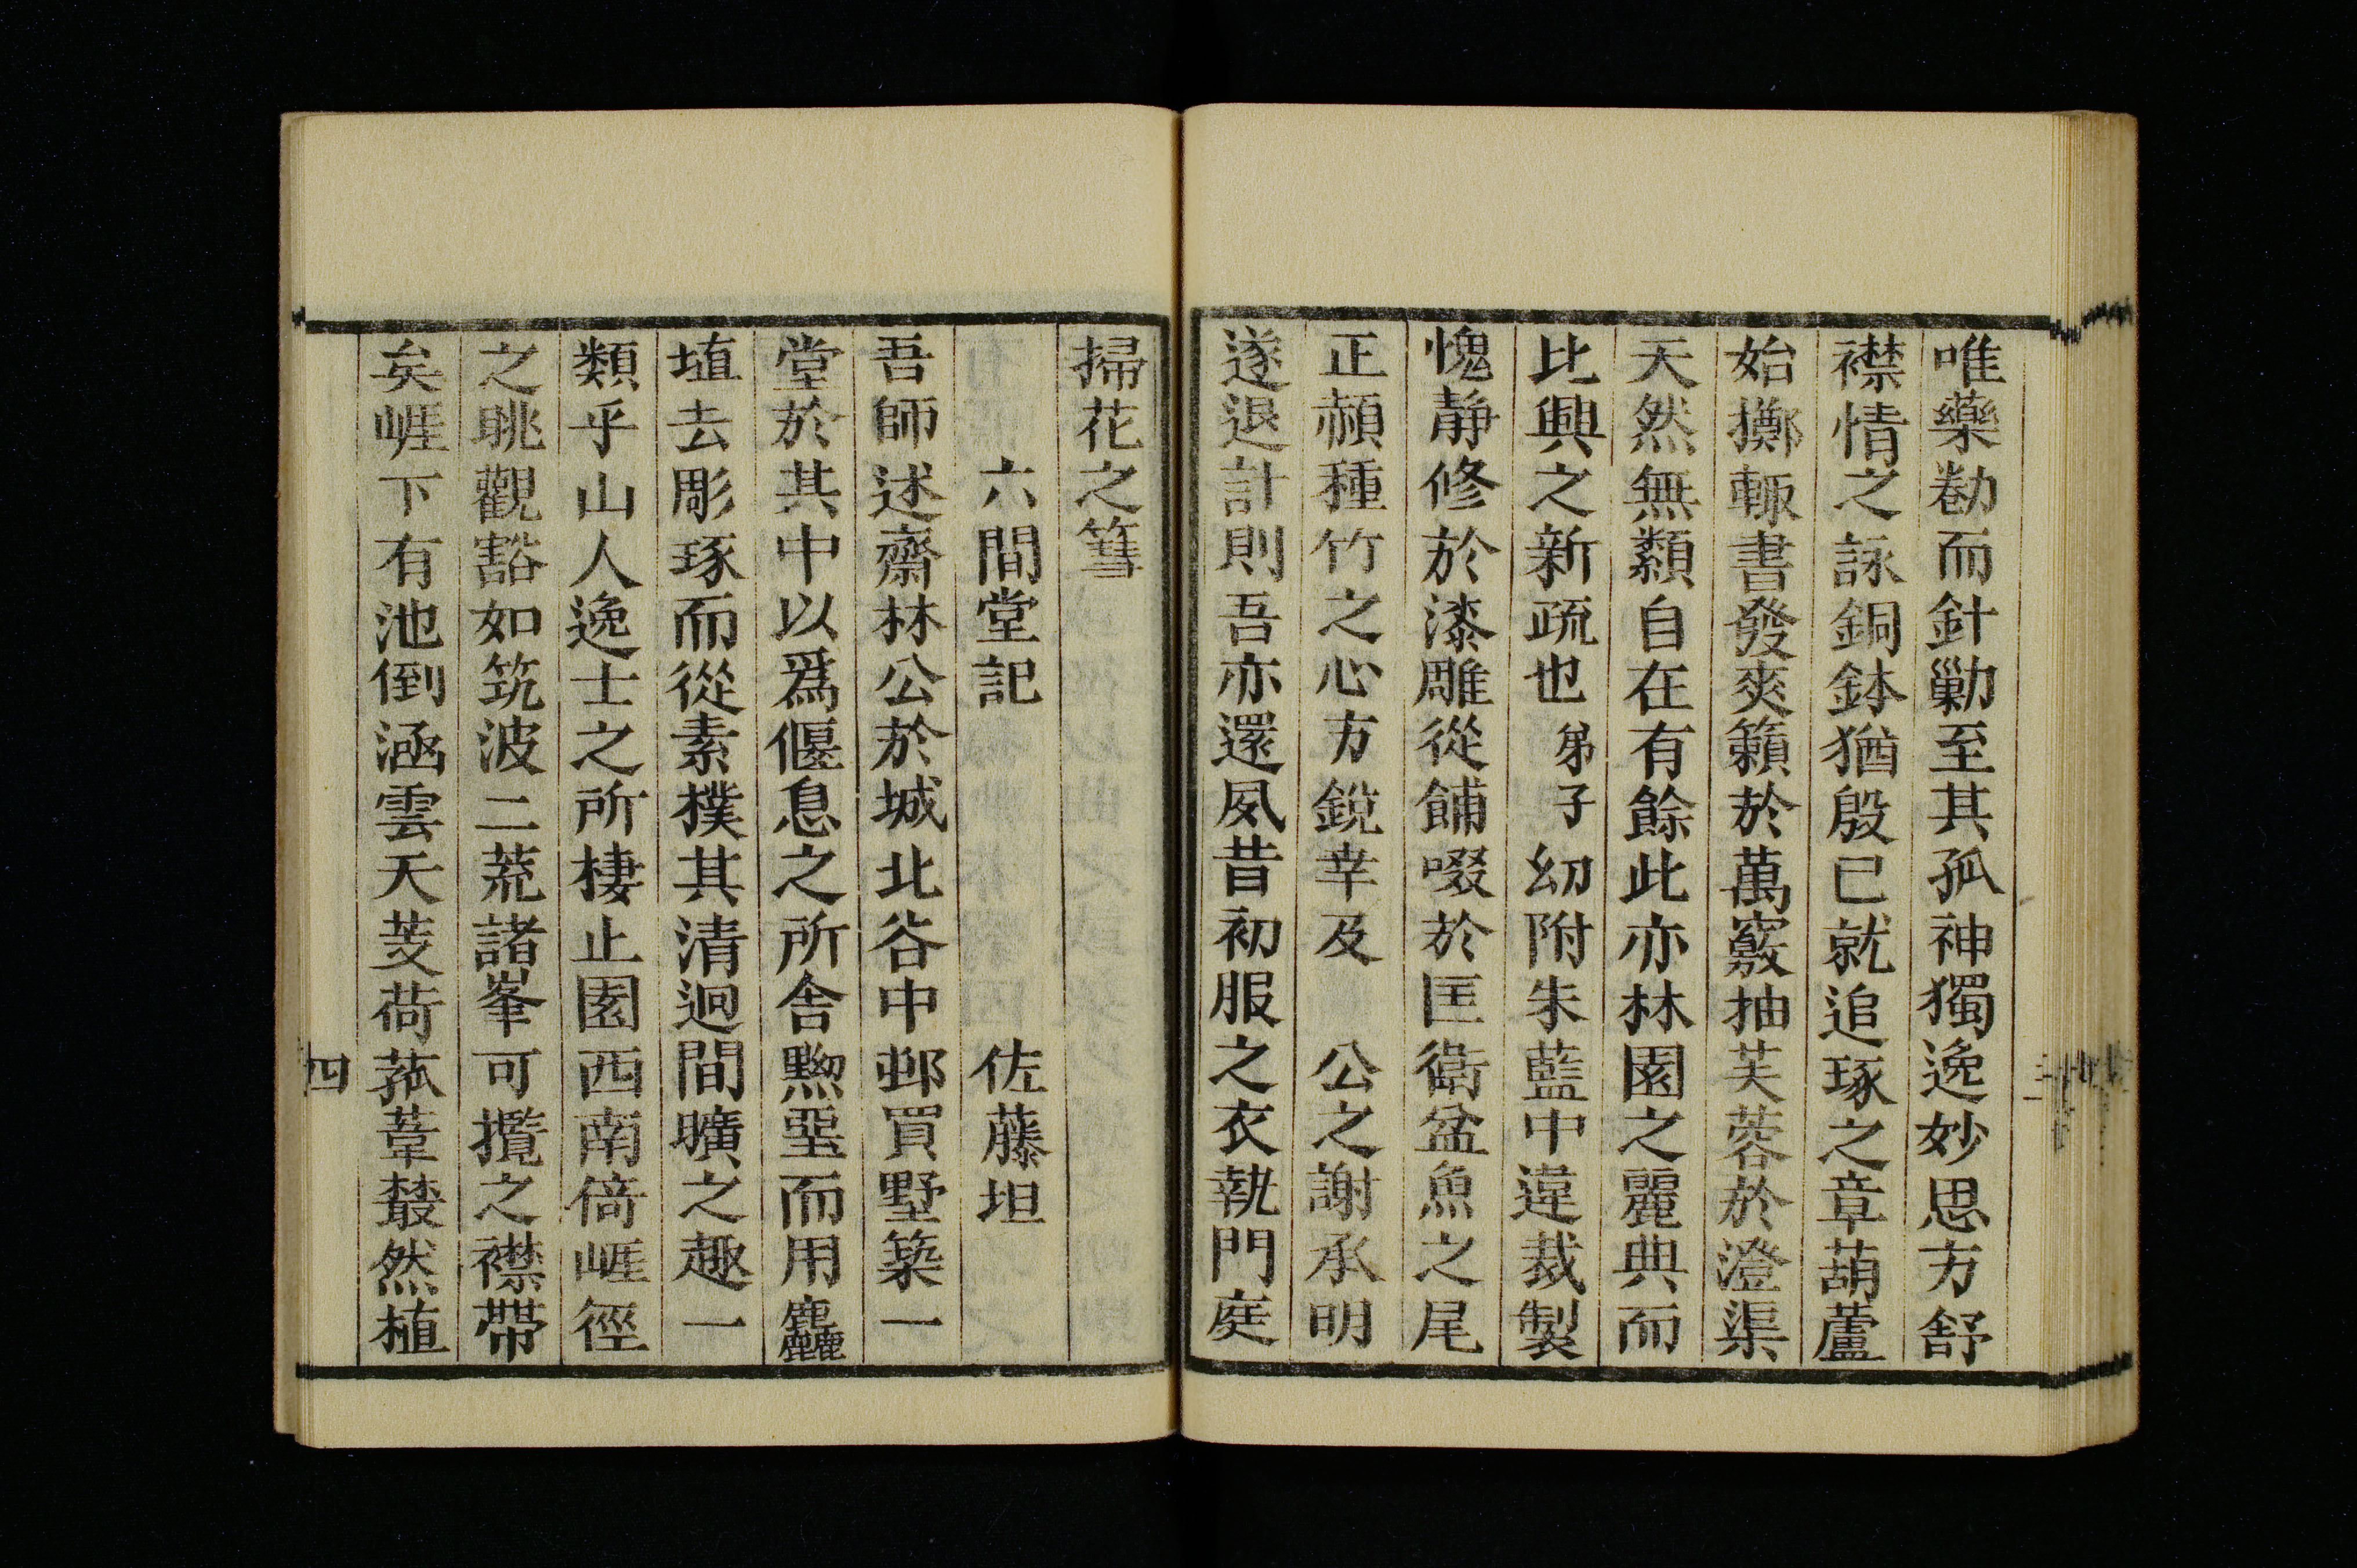 唯藥勌而針勦至其孤神獨逸妙思方舒
襟情之詠銅鉢猶殷已就追琢之章葫蘆
始擲輙書發爽籟於萬竅抽芙蓉於澄渠
天然無纇自在有餘此亦林園之麗典而
比興之新疏也弟子幼附朱藍中違裁製
愧靜修於漆雕從餔啜於匡衡盆魚之尾
正赬種竹之心方銳幸及公之謝承明
遂退計則吾亦還夙昔初服之衣執門庭
掃花之篲
六間堂記 佐藤坦
吾師述齋林公於城北谷中邨買墅築一
堂於其中以爲偃息之所舍黝堊而用麤
埴去彫琢而從素撲其清迥間曠之趣一
類乎山人逸士之所棲止園西南倚崕徑
之眺觀豁如筑波二荒諸峯可攬之襟帶
矣崕下有池倒涵雲天芰荷菰葦藂然植
三
四